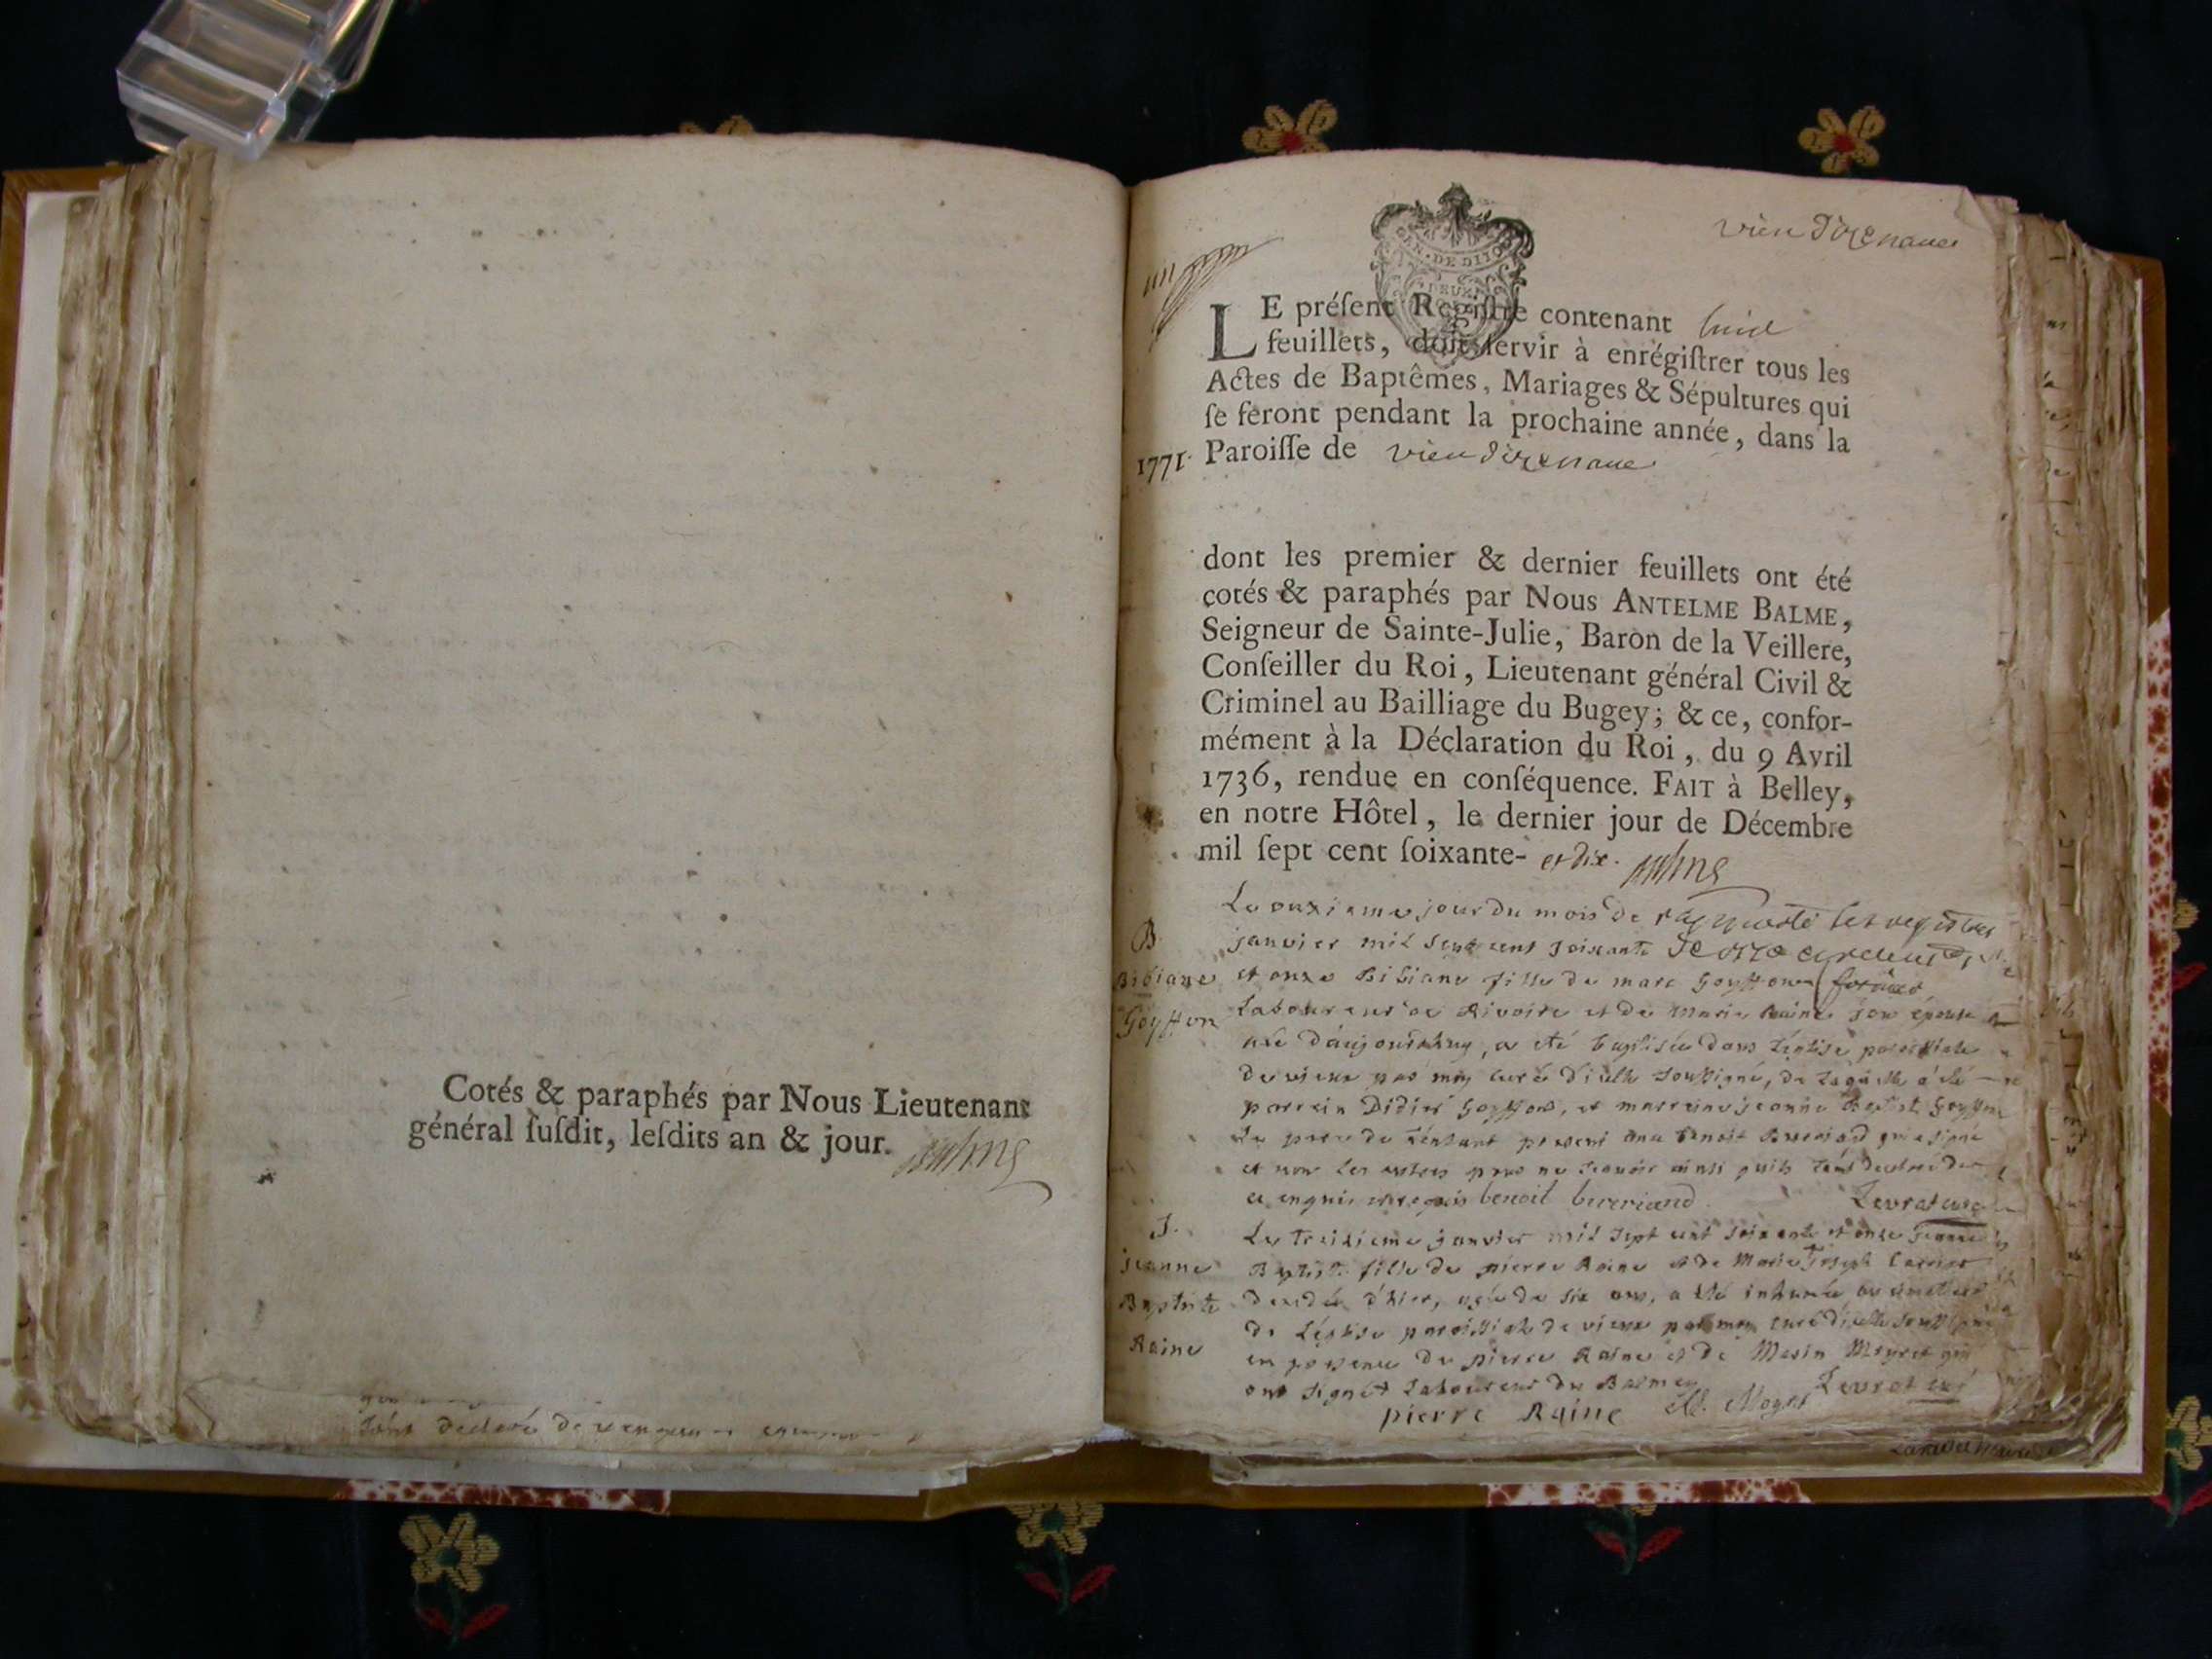 Cotés & paraphés par Nous Lieutenant
général ſuſdit, leſdits an & jour.
vieu d'izenave
GEN. DE DIJON
LE préſent Regiſtre contenant huit
feuillets, doit ſervir à enrégiſtrer tous les
Actes de Baptêmes, Mariages & Sépultures qui
ſe feront pendant la prochaine année, dans la
1771. Paroiſſe de vieu d'izenave
dont les premier & dernier feuillets ont été
cotés & paraphés par Nous ANTELME BALME,
Seigneur de Sainte-Julie, Baron de la Veillere,
Conſeiller du Roi, Lieutenant général Civil &
Criminel au Bailliage du Bugey; & ce, confor-
mément à la Déclaration du Roi, du 9 Avril
1736, rendue en conſéquence. FAIT à Belley,
en notre Hôtel, le dernier jour de Décembre
mil ſept cent ſoixante- et dix. Balme
Le onzieme jour du mois de
B.
janvier mil sept cent soixante
Bibiane
et onze Bibiane fille de marc Goyffon
Goyffon
Laboureur de Rivoire et de Marie Raine son épouse
née d'aujourdhuy, a été baptisée dans l'église paroissiale
de vieux par moy curé d'icelle soussigné, de laquelle a été
parrein Didier Goyffon, et marreine jeanne Baptiste Goyffon
Le pere de l'enfant present avec benoit qui a signé
et non les autres pour ne sçavoir ainsi quils l'ont declaré de
ce enquis et requis benoit Levrat curé
S.
Le treizieme janvier mil sept cent soixante et onze jeanne
jeanne
Baptiste fille de pierre Raine et de Marie Joseph
Baptiste
decedée d'hier, agée de six ans, a été inhumée au cimetiere
Raine
de L'église paroissiale de vieux par moy curé d'icelle soussigné
en presence de pierre Raine et de qui
ont signé Laboureur de Balmey
pierre Raine Levrat curé
sont declaré de